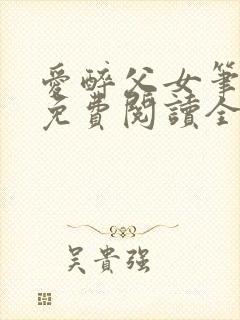 愛醉父女筆
免費閱讀全
吳貴強